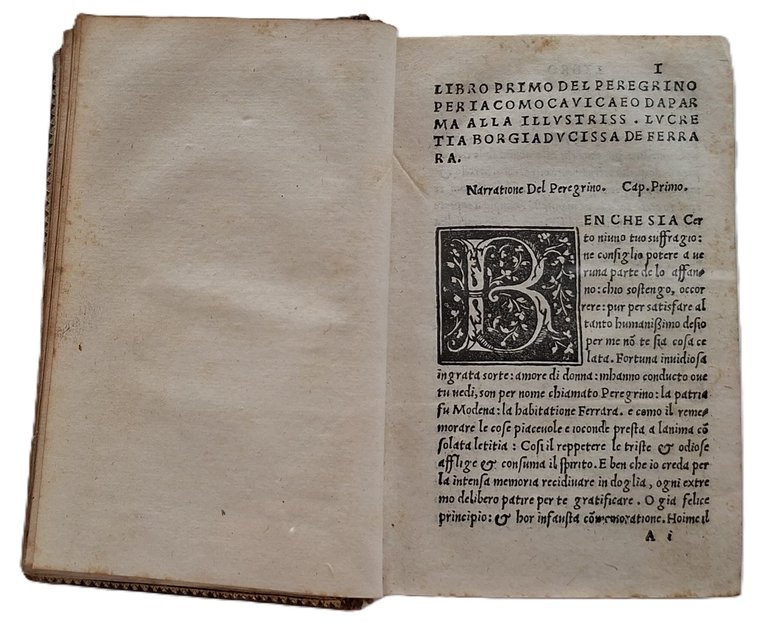 I
LIBRO PRIMO DEL PEREGRINO
PER IACOMO CAVICAEO DA PAR
MA ALLA ILLVSTRISS . LVCRE
TIA BORGIA DVCISSA DE FERRA
RA.
Narratione Del Peregrino. Cap. Primo.
BEN CHE SIA Cer
to niuno tuo suffragio:
ne consiglio potere a ue
runa parte de lo affan-
no: chio sostengo, occor
rere: pur per satisfare al
tanto humanißimo desio
per me nõ te sia cosa ce
lata. Fortuna inuidiosa
ingrata sorte: amore di donna: mhanno conducto oue
tu uedi, son per nome chiamato Peregrino: la patria
fu Modena: la habitatione Ferrara. e como il reme-
morare le cose piaceuole e ioconde presta a lanima cõ
solata letitia : Cosi il reppetere le triste & odiose
afflige & consuma il spirito. E ben che io creda per
la intensa memoria recidiuare in doglia, ogni extre
mo delibero patire per te gratificare. O gia felice
principio: & hor infausta cõmemoratione. Hoime il
A i